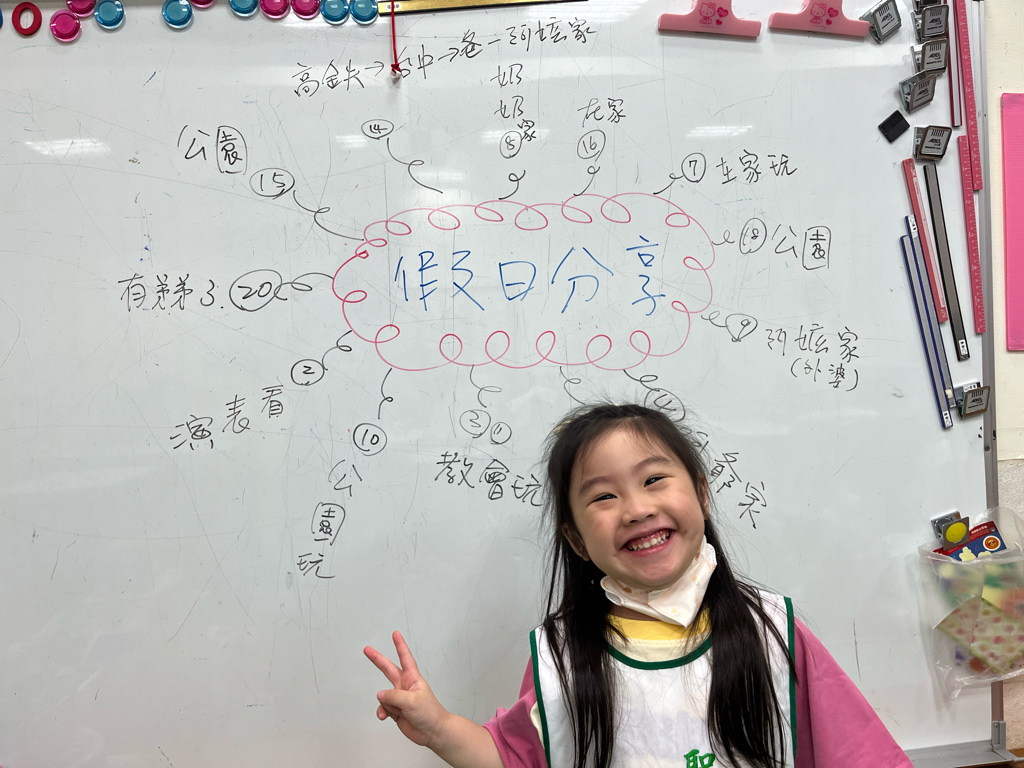 高金失→台中→
阿嬤家
⑭
奶
奶
家
⑮
在家
⑯
⑦ 在家玩
公園
⑮
⑱ 公園
假日分享
有弟弟了.⑳
⑨ 阿嬤家
(外婆)
②
演表看
⑩
公
園
玩
③ ①
教會玩
④
爺家